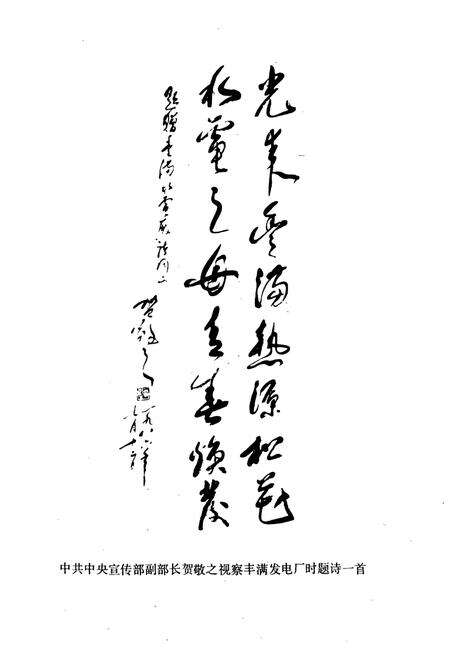 光来丰满热源松花
水电之母青春焕发
题赠丰满水电厂诗同志
贺敬之
一九八六年
中共中央宣传部副部长贺敬之视察丰满发电厂时题诗一首